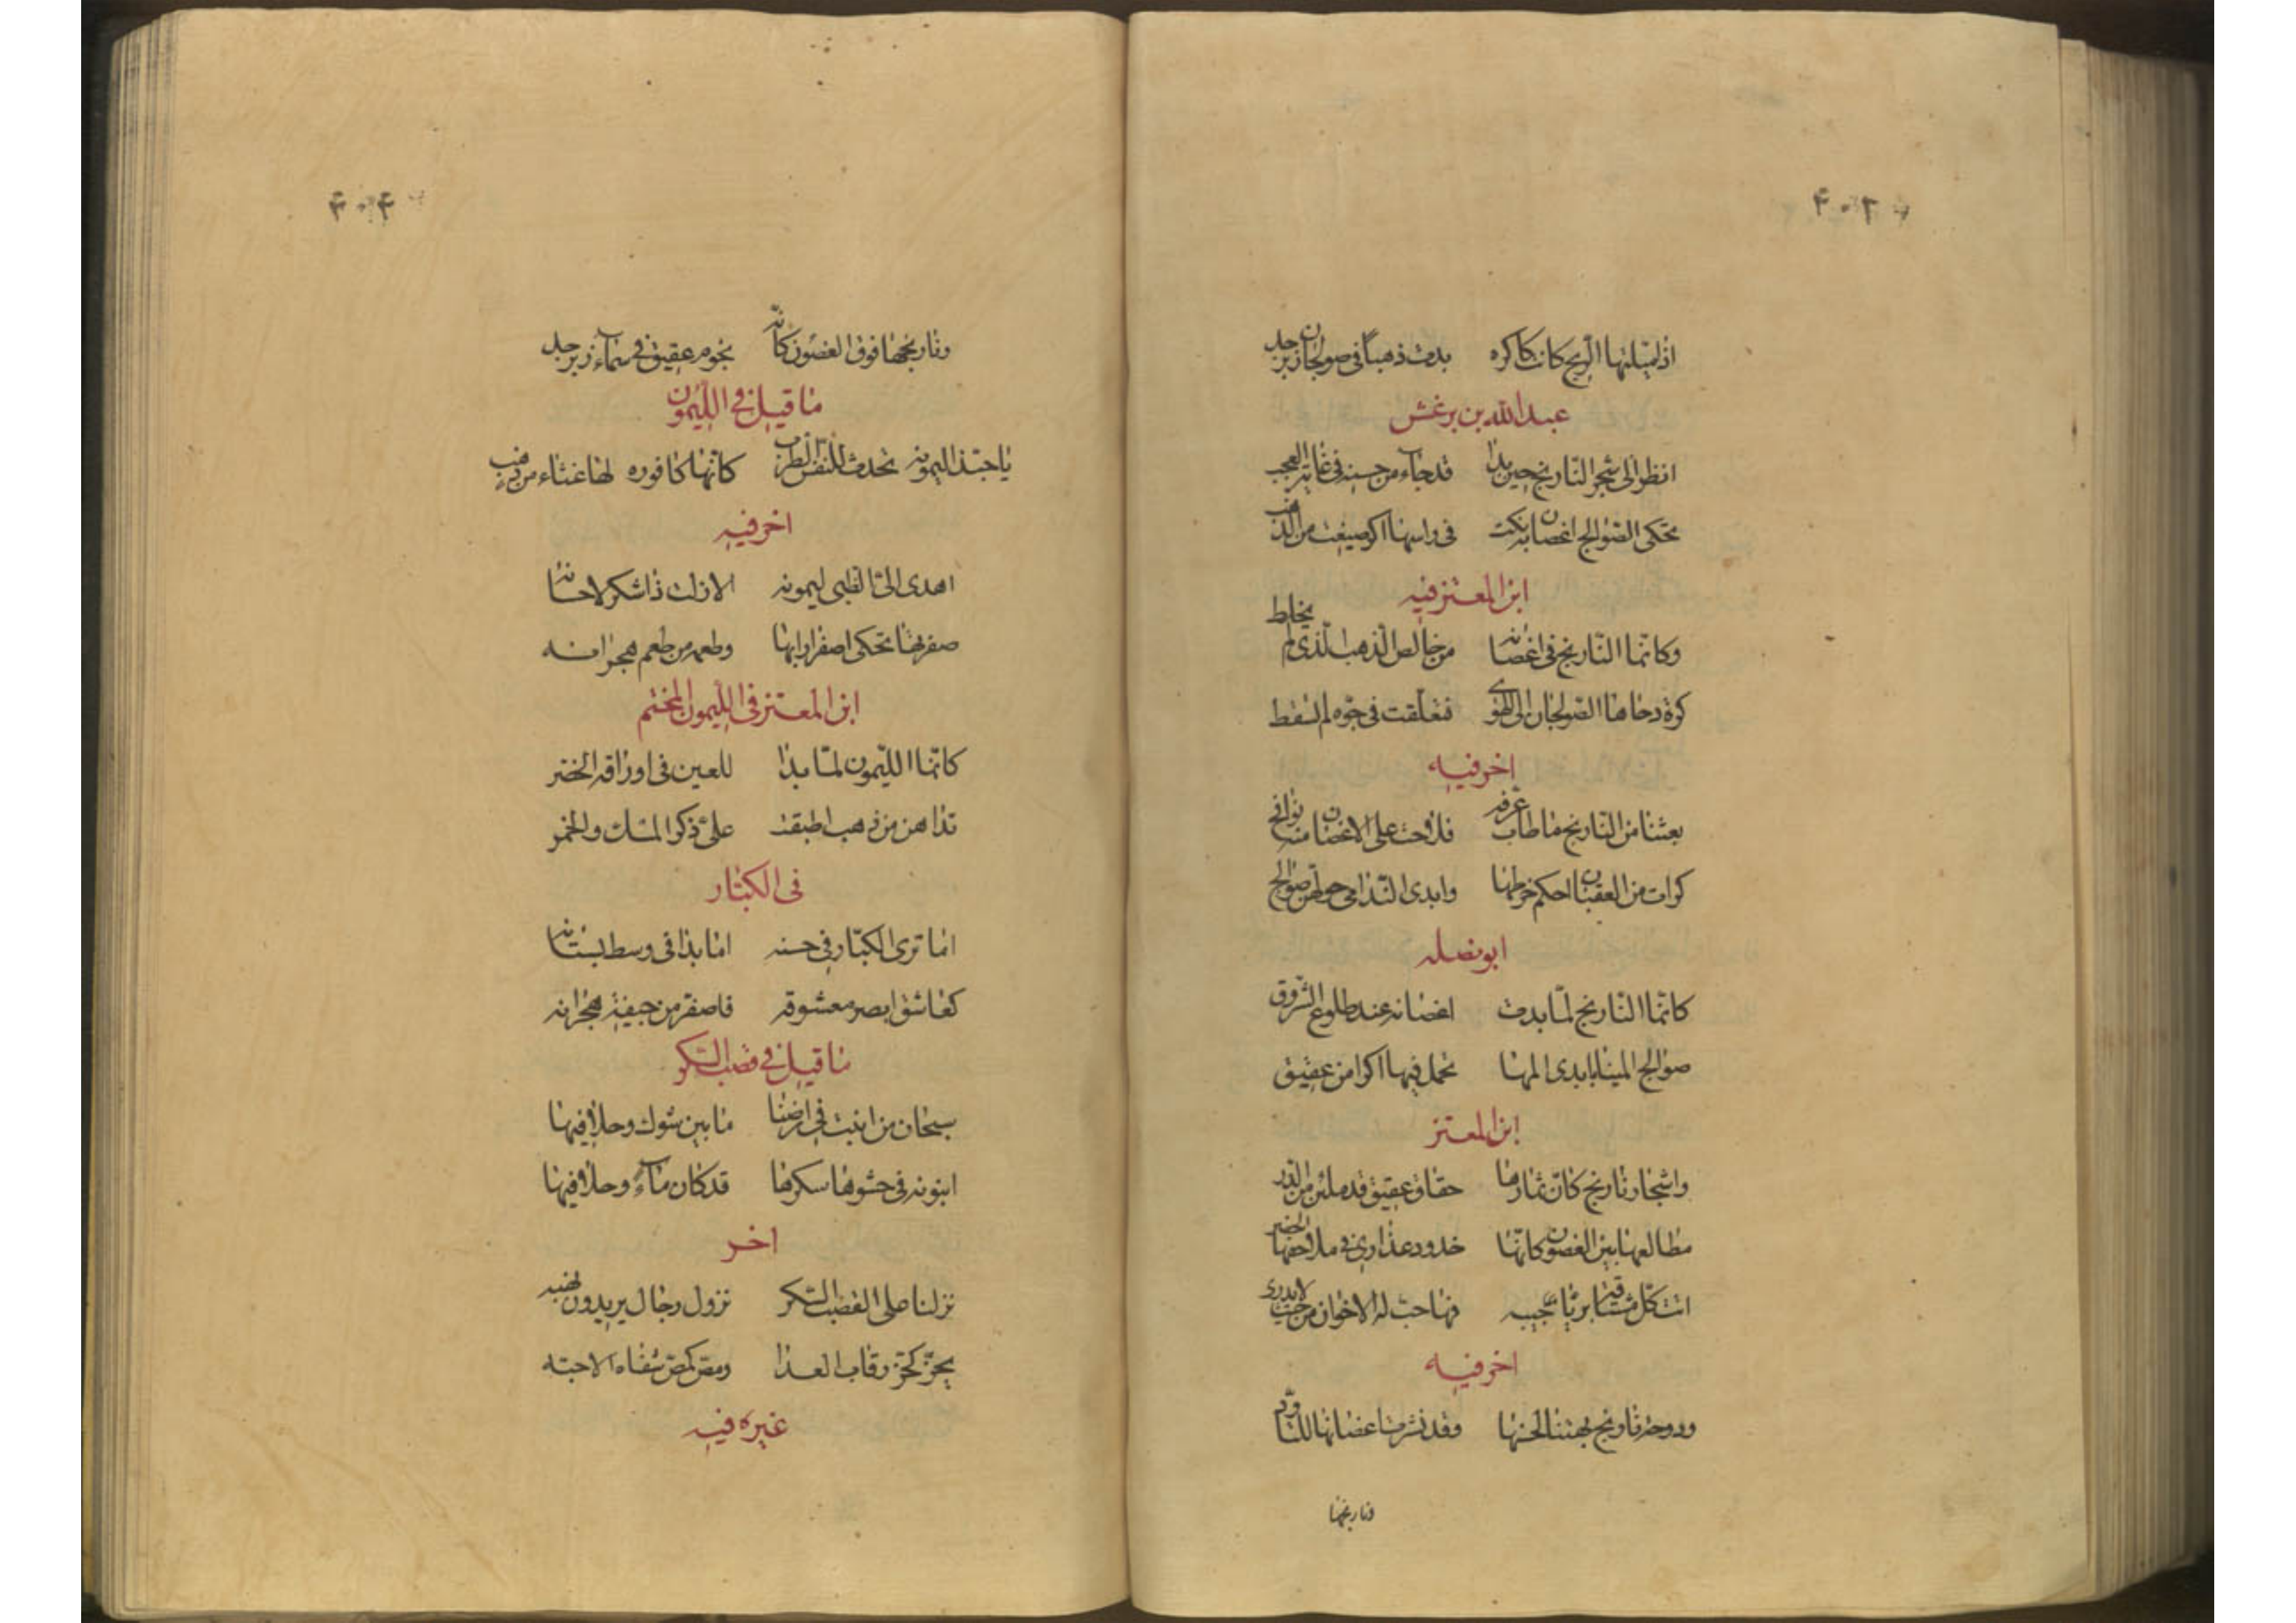 ۴۰۲
اذ لميلتها الريح كانت كاكره بدت ذهباً فى صولجان زبرجد
عبد الله بن برغش
انظر الى شجر النارنج حين بدا قد جاء من حسنه فى غاية العجب
تحكى الصوالج اغصان به نكت فى راسها اكر صيغت من الذهب
ابن المعتز فيه
وكانما النارنج فى اغصانه من خالص الذهب الذى لم يخلط
كرة دحاها الصولجان الى الهوى فتعلقت فى جوه لم تسقط
اخر فيه
بعثنا من النارنج ما طاب عرفه فلاحت على الاغصان منه نوافج
كرات من العقيان احكم خرطها وايدى الندامى حولهن صوالج
ابو نضله
كانما النارنج لما بدت اغصانه عند طلوع الشروق
صوالج المينا بايدى المها تحمل فيها اكرا من عقيق
ابن المعتز
واشجار نارنج كان ثمارها حقاق عقيق قد ملئن من الدر
مطالعها بين الغصون كانها خدود عذارى فى ملاحفها الخضر
اتت كل مشتاق بريا حبيبه فهاجت له الاخوان من حيث لا يدرى
اخر فيه
ودوحة نارنج بهتنا لحسنها وقد نشرت اغصانها للتاود
ونارنجها
۴۰۳
ونارنجها فوق الغصون كانه نجوم عقيق فى سماء زبرجد
ما قيل فى الليمون
يا حبذا ليمونه تحدث للنفس الطرب كانها كافوره لها غشاء من ذهب
اخر فيه
اهدى الى الظبى ليمونه لا زلت ذا شكر لاحسانه
صفرتها تحكى اصفرارى بها وطعمه من طعم هجرانه
ابن المعتز فى الليمون المختم
كانما الليمون لما بدا للعين فى اوراقه الخضر
تداهن من ذهب اطبقت على ذكى المسك والخمر
فى الكبار
اما ترى الكبار فى حسنه اما بدا فى وسط بستانه
كعاشق ابصر معشوقه فاصفر من خيفة هجرانه
ما قيل فى قصب السكر
سبحان من انبت فى ارضنا ما بين شوك وحلافيها
انبوبة فى حشوها سكرها قد كان ماء وحلا فيها
اخر
نزلنا على القصب السكر نزول رجال يريدون نهبه
بحز كحز رقاب العدا ومص كمص شفاه الاحبه
غيره فيه